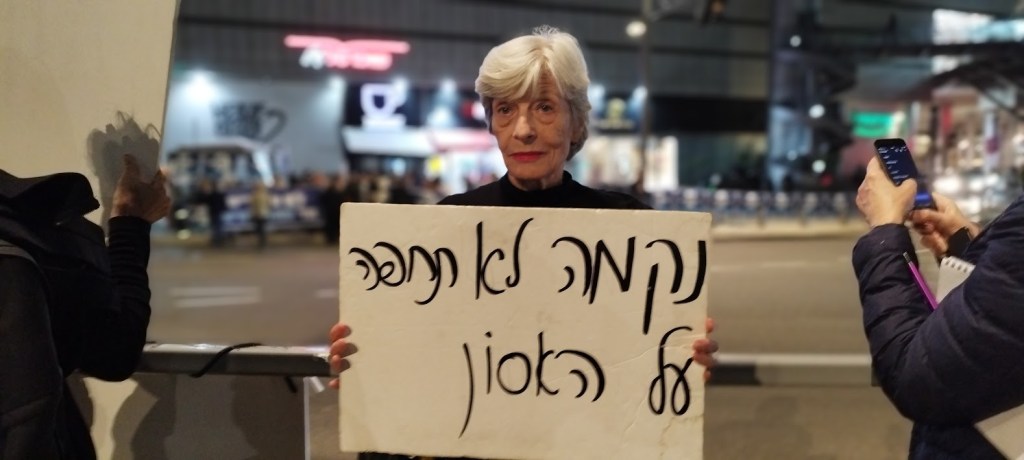 נקמה לא תחפה
על האסון